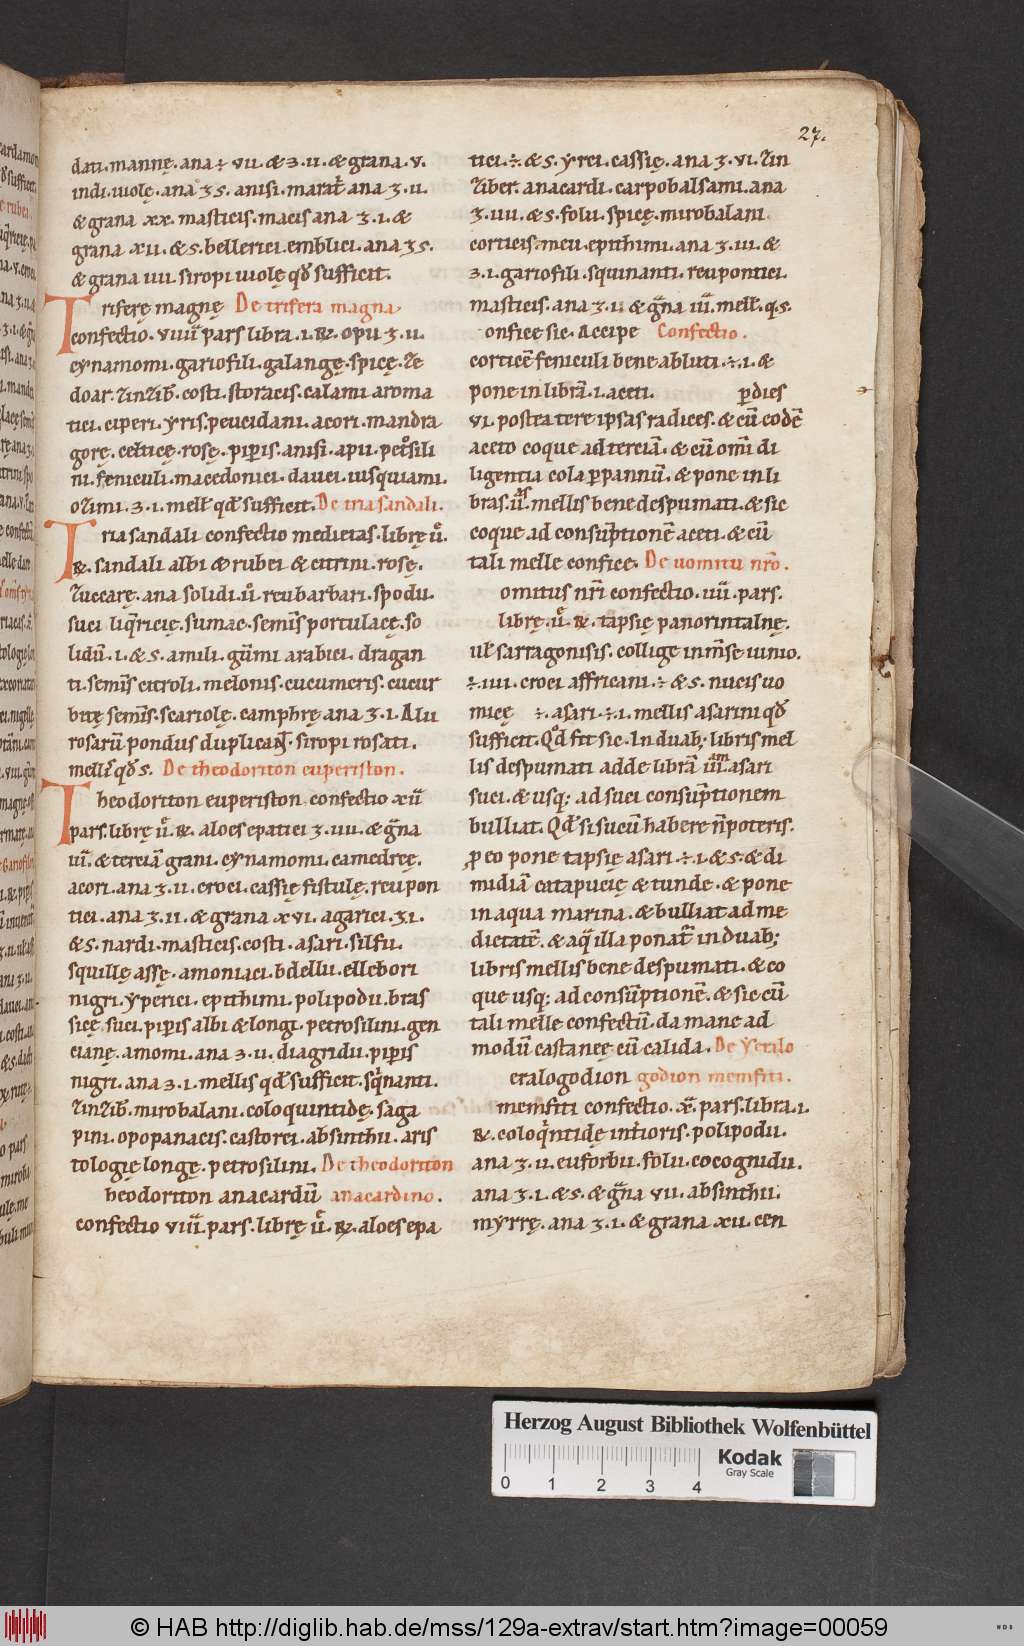 27.
dati. mannę. ana ÷ vii. & ʒ. ii. & grana. v.
indi. uiolę. ana ʒ s. anisi. marat̃ ana ʒ. ii.
& grana xx. masticis. macis ana ʒ. i. &
grana xii. & s. bellerici. emblici. ana ʒ s.
& grana iiii. siropi uiolę qd̃ sufficit.
Triferę magnę De trifera magna.
confectio. viiii pars libra. i. ℞. opii ʒ. ii.
cynamomi. gariofili. galangę. spicę. ze
doar. zinzib̃. costi. storacis. calami aroma
tici. ciperi. yris. peucidani. acori. mandra
gorę. celticę. rosę. pip̃is. anisi. apii. pet̃sili
ni. feniculi. macedonici. dauci. iusquiami.
ozimi. ʒ. i. mell̃ qd̃ sufficit. De tria sandali.
Tria sandali confectio medietas. librę ũ.
℞. sandali albi & rubei & citrini. rosę.
zuccarę. ana solidi. ii. reubarbari. spodii.
suci liq̃ricię. sumac. semis̃ portulacę. so
lidũ. i. & s. amili. gũmi arabici. dragan
ti. semis̃ citroli. melonis. cucumeris. cucur
bitę semis̃. scariolę. camphrę ana ʒ. i. Alii
rosarũ pondus duplicant. siropi rosati.
mell̃ qd̃ s. De theodoriton euperiston.
Theodoriton euperiston confectio xii
pars. librę ũ. ℞. aloes epatici ʒ. iiii. & g̃na
vii. & terciã grani. cynamomi. camedreę.
acori. ana ʒ. ii. croci. cassię fistulę. reupon
tici. ana ʒ. ii. & grana xvi. agarici. ʒ i.
& s. nardi. masticis. costi. asari. silfii.
squillę assę. amoniaci. bdellii. ellebori
nigri. yperici. epithimi. polipodii. bras
sicę. suci. pip̃is albi & longi. petrosilini. gen
cianę. amomi. ana ʒ. ii. diagridii. pip̃is
nigri. ana ʒ. i. mellis qd̃ sufficit. sq̃nanti.
zinzib̃. mirobalani. coloquintidę. saga
pini. opopanacis. castorei. absinthii. aris
tologię longę. petrosilini. De theodoriton
heodoriton anacardũ anacardino.
confectio viii. pars. librę ũ. ℞. aloes epa
tici. ÷. & s. yrei. cassię. ana ʒ. vi. zin
ziber. anacardi. carpobalsami. ana
ʒ. iii. & s. folii. spicę. mirobalani
corticis. meu. epithimi. ana ʒ. iii. &
ʒ. i. gariofili. squinanti. reupontici.
masticis. ana ʒ. ii & g̃na iii. mell̃. q. s.
onfice sic. Accipe Confectio.
corticẽ feniculi bene abluti. ÷. i. &
pone in librã. i. aceti. p̱ dies
vi. postea tere ipsas radices. & cũ eodẽ
aceto coque ad terciã. & cũ om̃i di
ligentia cola p̱ pannũ. & pone in li
bras. ii. mellis bene despumati. & sic
coque ad consũptionẽ aceti. & cũ
tali melle confice. De uomitu nr̃o.
omitus nr̃i confectio. iiii. pars.
librę. ũ. ℞. tapsię panorintalnę.
ul̃ sarragonisis. collige in m̃se iunio.
÷. iii. croci affricani. ÷ & s. nucis uo
micę ÷. asari. ÷. i. mellis asarini qd̃
sufficit. Qd̃ fit sic. In duab; libris mel
lis despumati adde librã iii. asari
suci. & usq; ad suci consũptionem
bulliat. Qd̃ si sucũ habere ñ poteris.
p̱ eo pone tapsię asari. ÷. i. & s. & di
midiã catapucię & tunde. & pone
in aqua marina. & bulliat ad me
dietatẽ. & aq̃ illa ponat̃ in duab;
libris mellis bene despumati. & co
que usq; ad consũptionẽ. & sic cũ
tali melle confectũ. da mane ad
modũ castaneę cũ calida. De Yctilo
eralogodion godion memfiti.
memfiti confectio. x. pars. libra. i.
℞. coloq̃ntidę int̃ioris. polipodii.
ana ʒ. ii. euforbii. folii. cocognidii.
ana ʒ. i. & s. & g̃na vii. absinthii.
myrrę. ana ʒ. i. & grana xii. cen
Herzog August Bibliothek Wolfenbüttel
Kodak
Gray Scale
0 1 2 3 4
© HAB http://diglib.hab.de/mss/129a-extrav/start.htm?image=00059